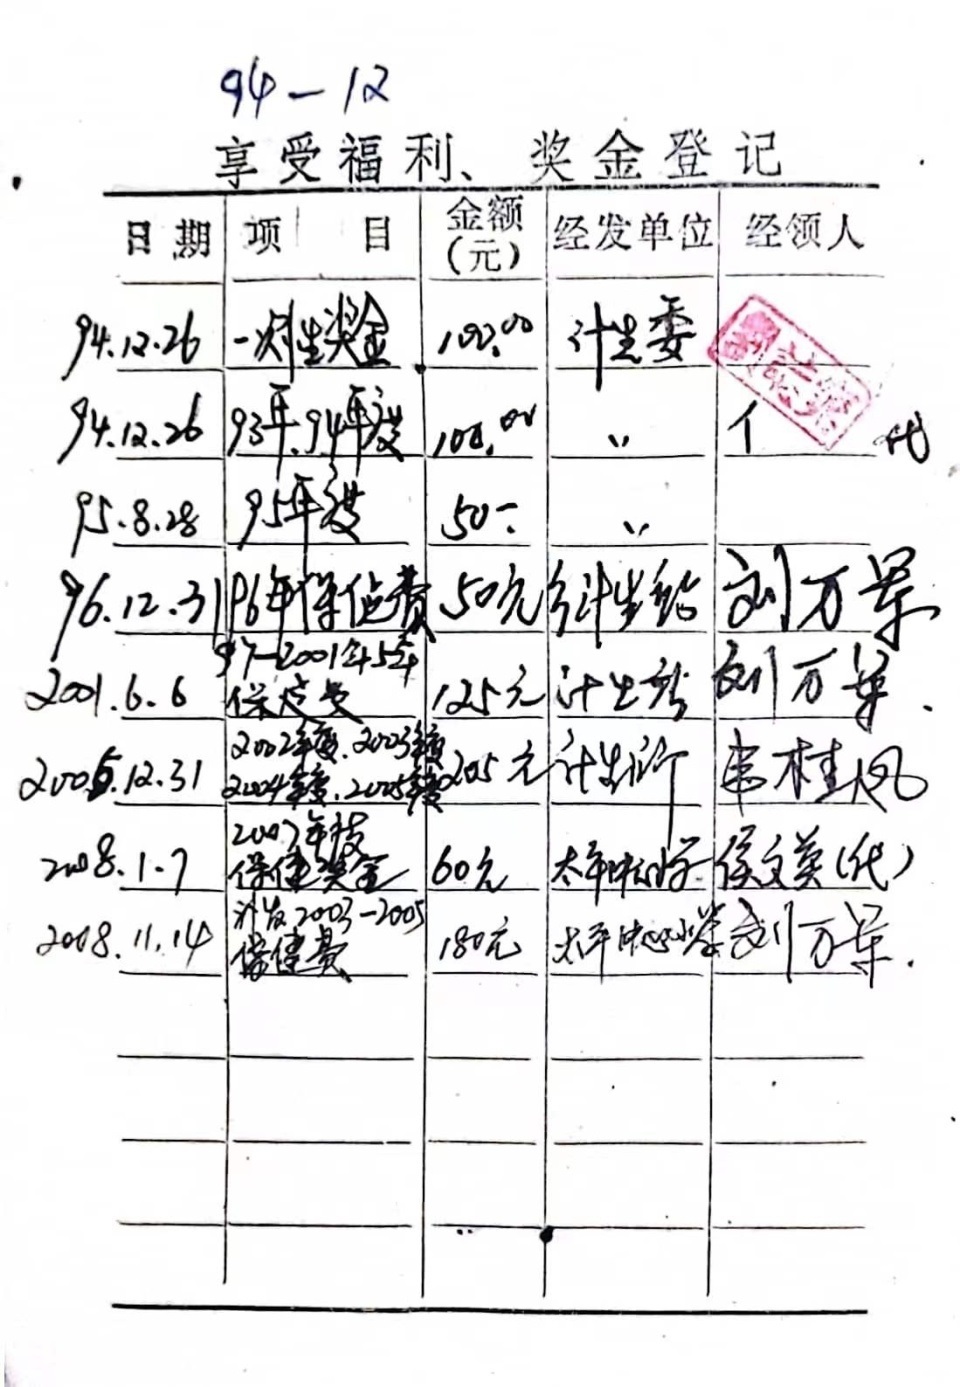 94-12
享受福利、奖金登记
日期 项目 金额(元) 经发单位 经领人
94.12.26 一次性奖金 100.00 计生委
94.12.26 93年、94年度 100.00 〃 代
95.8.28 95年度 50- 〃
96.12.31 96年保健费 50元 计生 刘万荣
97-2001年5年
2001.6.6 保健费 125元 计生所 刘万荣.
2002年度、2003年度
2005.12.31 2004年度、2005年度 205元 计生所 韦桂凤
2007年度
2008.1.7 保健奖金 60元 太平中心小学 侯文英(代)
补发2003-2005
2008.11.14 保健费 180元 太平中心小学 刘万荣.